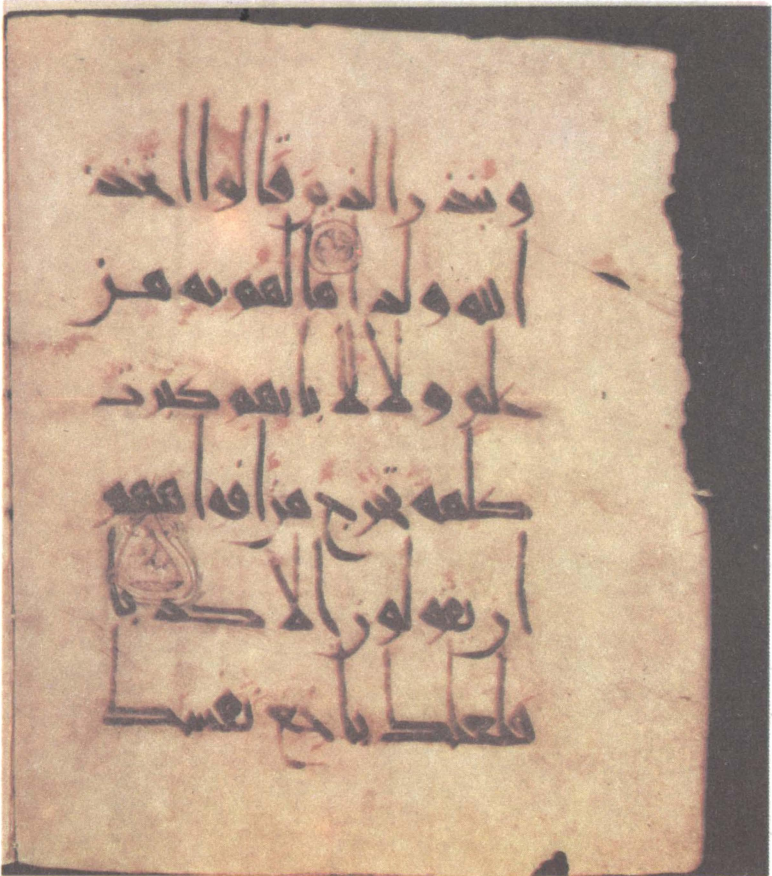 وينذر الذين قالوا اتخذ
الله ولدا ما لهم به من
علم ولا لابايهم كبرت
كلمة تخرج من افواههم
ان يقولون الا كذبا
فلعلك باخع نفسك